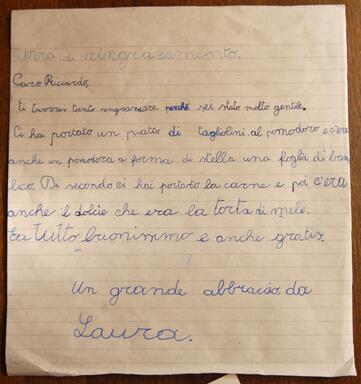 lettera di ringrazamento.
Caro Riccardo,
ti vorrei tanto ringraziare perché sei stato molto gentile.
Ci hai portato un piatto di tagliolini al pomodoro e c'era
anche un pomodoro a forma di stella una foglia di basi
lico. Di secondo ci hai portato la carne e poi c'era
anche il dolcie che era la torta di mele.
Era tutto buonissimo e anche gratis.
Un grande abbraccio, da
Laura.